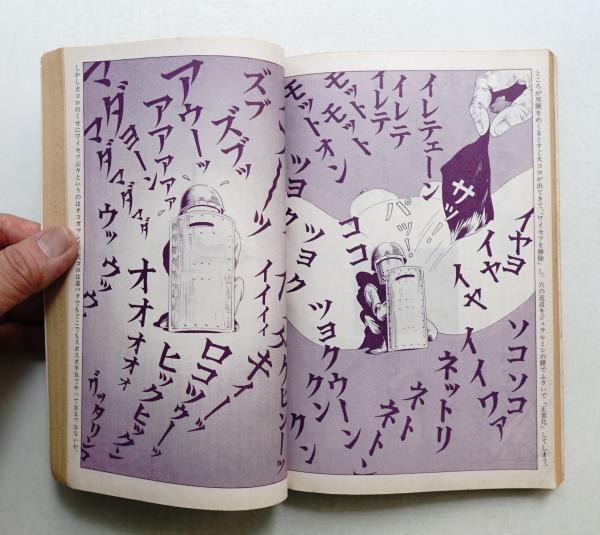 ところが黒幕をめくるとすぐ犬コロが出てきて、「ワイセツを排除」し、穴の近辺をジュラルミンの楯でふさいで「正常化」してしまう。
サッ
イレテェーン
イレテ
イレテ
モットオン
モット
モット
パッ!
イヤヨ
イヤ
イヤ
ソコソコ
イイワァ
ココ
ネットリ
ネト
ネトン
ツヨク
ツヨク
ツヨクウーン
クン
クン
ズブ
ズブッ
アウーッ
アアアアァ
マダョーン
マダマダ
マダマダ
ウッ
オオオオォ
イイイィ
ロコッウーッ
ヒックヒック
グッタリン
しかし犬コロのくせにワイセツ云々というのはオコガマシイ。犬コロは道バタでもどこでもスポスポ平気でやっておるではないか。